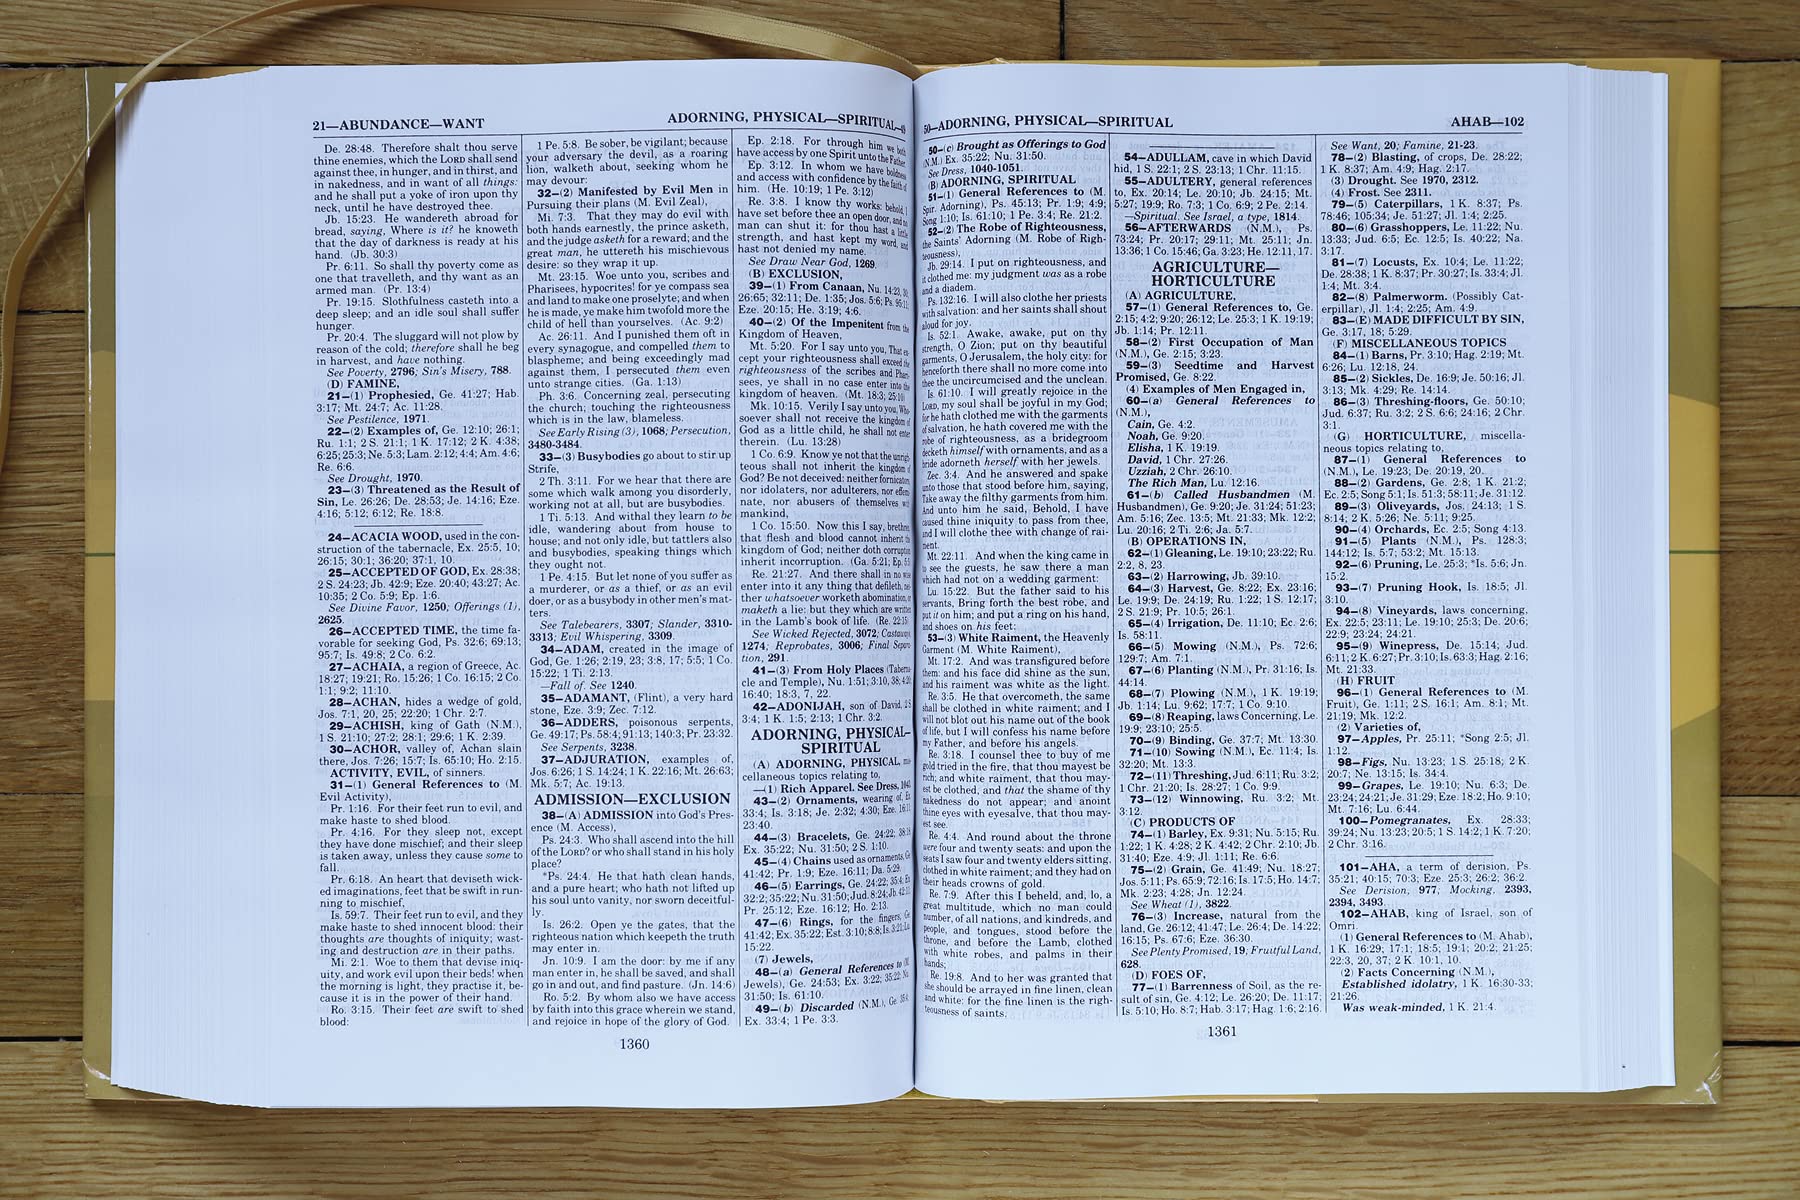 21—ABUNDANCE—WANT
ADORNING, PHYSICAL—SPIRITUAL—49
De. 28:48. Therefore shalt thou serve
thine enemies, which the LORD shall send
against thee, in hunger, and in thirst, and
in nakedness, and in want of all things:
and he shall put a yoke of iron upon thy
neck, until he have destroyed thee.
Jb. 15:23. He wandereth abroad for
bread, saying, Where is it? he knoweth
that the day of darkness is ready at his
hand. (Jb. 30:3)
Pr. 6:11. So shall thy poverty come as
one that travelleth, and thy want as an
armed man. (Pr. 13:4)
Pr. 19:15. Slothfulness casteth into a
deep sleep; and an idle soul shall suffer
hunger.
Pr. 20:4. The sluggard will not plow by
reason of the cold; therefore shall he beg
in harvest, and have nothing.
See Poverty, 2796; Sin's Misery, 788.
(D) FAMINE,
21—(1) Prophesied, Ge. 41:27; Hab.
3:17; Mt. 24:7; Ac. 11:28.
See Pestilence, 1971.
22—(2) Examples of, Ge. 12:10; 26:1;
Ru. 1:1; 2 S. 21:1; 1 K. 17:12; 2 K. 4:38;
6:25; 25:3; Ne. 5:3; Lam. 2:12; 4:4; Am. 4:6;
Re. 6:6.
See Drought, 1970.
23—(3) Threatened as the Result of
Sin, Le. 26:26; De. 28:53; Je. 14:16; Eze.
4:16; 5:12; 6:12; Re. 18:8.
24—ACACIA WOOD, used in the con-
struction of the tabernacle, Ex. 25:5, 10;
26:15; 30:1; 36:20; 37:1, 10.
25—ACCEPTED OF GOD, Ex. 28:38;
2 S. 24:23; Jb. 42:9; Eze. 20:40; 43:27; Ac.
10:35; 2 Co. 5:9; Ep. 1:6.
See Divine Favor, 1250; Offerings (1),
2625.
26—ACCEPTED TIME, the time fa-
vorable for seeking God, Ps. 32:6; 69:13;
95:7; Is. 49:8; 2 Co. 6:2.
27—ACHAIA, a region of Greece, Ac.
18:27; 19:21; Ro. 15:26; 1 Co. 16:15; 2 Co.
1:1; 9:2; 11:10.
28—ACHAN, hides a wedge of gold,
Jos. 7:1, 20, 25; 22:20; 1 Chr. 2:7.
29—ACHISH, king of Gath (N.M.),
1 S. 21:10; 27:2; 28:1; 29:6; 1 K. 2:39.
30—ACHOR, valley of, Achan slain
there, Jos. 7:26; 15:7; Is. 65:10; Ho. 2:15.
ACTIVITY, EVIL, of sinners.
31—(1) General References to (M.
Evil Activity),
Pr. 1:16. For their feet run to evil, and
make haste to shed blood.
Pr. 4:16. For they sleep not, except
they have done mischief; and their sleep
is taken away, unless they cause some to
fall.
Pr. 6:18. An heart that deviseth wick-
ed imaginations, feet that be swift in run-
ning to mischief,
Is. 59:7. Their feet run to evil, and they
make haste to shed innocent blood: their
thoughts are thoughts of iniquity; wast-
ing and destruction are in their paths.
Mi. 2:1. Woe to them that devise iniq-
uity, and work evil upon their beds! when
the morning is light, they practise it, be-
cause it is in the power of their hand.
Ro. 3:15. Their feet are swift to shed
blood:
1 Pe. 5:8. Be sober, be vigilant; because
your adversary the devil, as a roaring
lion, walketh about, seeking whom he
may devour:
32—(2) Manifested by Evil Men in
Pursuing their plans (M. Evil Zeal),
Mi. 7:3. That they may do evil with
both hands earnestly, the prince asketh,
and the judge asketh for a reward; and the
great man, he uttereth his mischievous
desire: so they wrap it up.
Mt. 23:15. Woe unto you, scribes and
Pharisees, hypocrites! for ye compass sea
and land to make one proselyte; and when
he is made, ye make him twofold more the
child of hell than yourselves. (Ac. 9:2)
Ac. 26:11. And I punished them oft in
every synagogue, and compelled them to
blaspheme; and being exceedingly mad
against them, I persecuted them even
unto strange cities. (Ga. 1:13)
Ph. 3:6. Concerning zeal, persecuting
the church; touching the righteousness
which is in the law, blameless.
See Early Rising (3), 1068; Persecution,
3480-3484.
33—(3) Busybodies go about to stir up
Strife,
2 Th. 3:11. For we hear that there are
some which walk among you disorderly,
working not at all, but are busybodies.
1 Ti. 5:13. And withal they learn to be
idle, wandering about from house to
house; and not only idle, but tattlers also
and busybodies, speaking things which
they ought not.
1 Pe. 4:15. But let none of you suffer as
a murderer, or as a thief, or as an evil
doer, or as a busybody in other men's mat-
ters.
See Talebearers, 3307; Slander, 3310-
3313; Evil Whispering, 3309.
34—ADAM, created in the image of
God, Ge. 1:26; 2:19, 23; 3:8, 17; 5:5; 1 Co.
15:22; 1 Ti. 2:13.
—Fall of. See 1240.
35—ADAMANT, (Flint), a very hard
stone, Eze. 3:9; Zec. 7:12.
36—ADDERS, poisonous serpents,
Ge. 49:17; Ps. 58:4; 91:13; 140:3; Pr. 23:32.
See Serpents, 3238.
37—ADJURATION, examples of,
Jos. 6:26; 1 S. 14:24; 1 K. 22:16; Mt. 26:63;
Mk. 5:7; Ac. 19:13.
ADMISSION—EXCLUSION
38—(A) ADMISSION into God's Pres-
ence (M. Access),
Ps. 24:3. Who shall ascend into the hill
of the LORD? or who shall stand in his holy
place?
*Ps. 24:4. He that hath clean hands,
and a pure heart; who hath not lifted up
his soul unto vanity, nor sworn deceitful-
ly.
Is. 26:2. Open ye the gates, that the
righteous nation which keepeth the truth
may enter in.
Jn. 10:9. I am the door: by me if any
man enter in, he shall be saved, and shall
go in and out, and find pasture. (Jn. 14:6)
Ro. 5:2. By whom also we have access
by faith into this grace wherein we stand,
and rejoice in hope of the glory of God.
Ep. 2:18. For through him we both
have access by one Spirit unto the Father.
Ep. 3:12. In whom we have boldness
and access with confidence by the faith of
him. (He. 10:19; 1 Pe. 3:12)
Re. 3:8. I know thy works: behold, I
have set before thee an open door, and no
man can shut it: for thou hast a little
strength, and hast kept my word, and
hast not denied my name.
See Draw Near God, 1269.
(B) EXCLUSION,
39—(1) From Canaan, Nu. 14:23, 30;
26:65; 32:11; De. 1:35; Jos. 5:6; Ps. 95:11;
Eze. 20:15; He. 3:19; 4:6.
40—(2) Of the Impenitent from the
Kingdom of Heaven,
Mt. 5:20. For I say unto you, That ex-
cept your righteousness shall exceed the
righteousness of the scribes and Phari-
sees, ye shall in no case enter into the
kingdom of heaven. (Mt. 18:3; 25:10)
Mk. 10:15. Verily I say unto you, Who-
soever shall not receive the kingdom of
God as a little child, he shall not enter
therein. (Lu. 13:28)
1 Co. 6:9. Know ye not that the unrigh-
teous shall not inherit the kingdom of
God? Be not deceived: neither fornicators,
nor idolaters, nor adulterers, nor effemi-
nate, nor abusers of themselves with
mankind,
1 Co. 15:50. Now this I say, brethren,
that flesh and blood cannot inherit the
kingdom of God; neither doth corruption
inherit incorruption. (Ga. 5:21; Ep. 5:5)
Re. 21:27. And there shall in no wise
enter into it any thing that defileth, nei-
ther whatsoever worketh abomination, or
maketh a lie: but they which are written
in the Lamb's book of life. (Re. 22:15)
See Wicked Rejected, 3072; Castaways,
1274; Reprobates, 3006; Final Separa-
tion, 291.
41—(3) From Holy Places (Taberna-
cle and Temple), Nu. 1:51; 3:10, 38; 4:20;
16:40; 18:3, 7, 22.
42—ADONIJAH, son of David, 2 S.
3:4; 1 K. 1:5; 2:13; 1 Chr. 3:2.
ADORNING, PHYSICAL—
SPIRITUAL
(A) ADORNING, PHYSICAL, mis-
cellaneous topics relating to,
—(1) Rich Apparel. See Dress,
43—(2) Ornaments, wearing of, Ex.
33:4; Is. 3:18; Je. 2:32; 4:30; Eze. 16:11;
23:40.
44—(3) Bracelets, Ge. 24:22; 38:18;
Ex. 35:22; Nu. 31:50; 2 S. 1:10.
45—(4) Chains used as ornaments, Ge.
41:42; Pr. 1:9; Eze. 16:11; Da. 5:29.
46—(5) Earrings, Ge. 24:22; 35:4; Ex.
32:2; 35:22; Nu. 31:50; Jud. 8:24; Jb. 42:11;
Pr. 25:12; Eze. 16:12; Ho. 2:13.
47—(6) Rings, for the fingers, Ge.
41:42; Ex. 35:22; Est. 3:10; 8:8; Is. 3:21; Lu.
15:22.
(7) Jewels,
48—(a) General References to (M.
Jewels), Ge. 24:53; Ex. 3:22; 35:22; Nu.
31:50; Is. 61:10.
49—(b) Discarded (N.M.), Ge. 35:4;
Ex. 33:4; 1 Pe. 3:3.
1360
50—ADORNING, PHYSICAL—SPIRITUAL
AHAB—102
50—(c) Brought as Offerings to God
(N.M.) Ex. 35:22; Nu. 31:50.
See Dress, 1040-1051.
(B) ADORNING, SPIRITUAL
51—(1) General References to (M.
Spir. Adorning), Ps. 45:13; Pr. 1:9; 4:9;
Song 1:10; Is. 61:10; 1 Pe. 3:4; Re. 21:2.
52—(2) The Robe of Righteousness,
the Saints' Adorning (M. Robe of Righ-
teousness),
Jb. 29:14. I put on righteousness, and
it clothed me: my judgment was as a robe
and a diadem.
Ps. 132:16. I will also clothe her priests
with salvation: and her saints shall shout
aloud for joy.
Is. 52:1. Awake, awake, put on thy
strength, O Zion; put on thy beautiful
garments, O Jerusalem, the holy city: for
henceforth there shall no more come into
thee the uncircumcised and the unclean.
Is. 61:10. I will greatly rejoice in the
LORD, my soul shall be joyful in my God;
for he hath clothed me with the garments
of salvation, he hath covered me with the
robe of righteousness, as a bridegroom
decketh himself with ornaments, and as a
bride adorneth herself with her jewels.
Zec. 3:4. And he answered and spake
unto those that stood before him, saying,
Take away the filthy garments from him.
And unto him he said, Behold, I have
caused thine iniquity to pass from thee,
and I will clothe thee with change of rai-
ment.
Mt. 22:11. And when the king came in
to see the guests, he saw there a man
which had not on a wedding garment:
Lu. 15:22. But the father said to his
servants, Bring forth the best robe, and
put it on him; and put a ring on his hand,
and shoes on his feet:
53—(3) White Raiment, the Heavenly
Garment (M. White Raiment),
Mt. 17:2. And was transfigured before
them: and his face did shine as the sun,
and his raiment was white as the light.
Re. 3:5. He that overcometh, the same
shall be clothed in white raiment; and I
will not blot out his name out of the book
of life, but I will confess his name before
my Father, and before his angels.
Re. 3:18. I counsel thee to buy of me
gold tried in the fire, that thou mayest be
rich; and white raiment, that thou may-
est be clothed, and that the shame of thy
nakedness do not appear; and anoint
thine eyes with eyesalve, that thou may-
est see.
Re. 4:4. And round about the throne
were four and twenty seats: and upon the
seats I saw four and twenty elders sitting,
clothed in white raiment; and they had on
their heads crowns of gold.
Re. 7:9. After this I beheld, and, lo, a
great multitude, which no man could
number, of all nations, and kindreds, and
people, and tongues, stood before the
throne, and before the Lamb, clothed
with white robes, and palms in their
hands;
Re. 19:8. And to her was granted that
she should be arrayed in fine linen, clean
and white: for the fine linen is the righ-
teousness of saints.
54—ADULLAM, cave in which David
hid, 1 S. 22:1; 2 S. 23:13; 1 Chr. 11:15.
55—ADULTERY, general references
to, Ex. 20:14; Le. 20:10; Jb. 24:15; Mt.
5:27; 19:9; Ro. 7:3; 1 Co. 6:9; 2 Pe. 2:14.
—Spiritual. See Israel, a type, 1814.
56—AFTERWARDS (N.M.), Ps.
73:24; Pr. 20:17; 29:11; Mt. 25:11; Jn.
13:36; 1 Co. 15:46; Ga. 3:23; He. 12:11, 17.
AGRICULTURE—
HORTICULTURE
(A) AGRICULTURE,
57—(1) General References to, Ge.
2:15; 4:2; 9:20; 26:12; Le. 25:3; 1 K. 19:19;
Jb. 1:14; Pr. 12:11.
58—(2) First Occupation of Man
(N.M.), Ge. 2:15; 3:23.
59—(3) Seedtime and Harvest
Promised, Ge. 8:22.
(4) Examples of Men Engaged in,
60—(a) General References to
(N.M.),
Cain, Ge. 4:2.
Noah, Ge. 9:20.
Elisha, 1 K. 19:19.
David, 1 Chr. 27:26.
Uzziah, 2 Chr. 26:10.
The Rich Man, Lu. 12:16.
61—(b) Called Husbandmen (M.
Husbandmen), Ge. 9:20; Je. 31:24; 51:23;
Am. 5:16; Zec. 13:5; Mt. 21:33; Mk. 12:2;
Lu. 20:16; 2 Ti. 2:6; Ja. 5:7.
(B) OPERATIONS IN,
62—(1) Gleaning, Le. 19:10; 23:22; Ru.
2:2, 8, 23.
63—(2) Harrowing, Jb. 39:10.
64—(3) Harvest, Ge. 8:22; Ex. 23:16;
Le. 19:9; De. 24:19; Ru. 1:22; 1 S. 12:17;
2 S. 21:9; Pr. 10:5; 26:1.
65—(4) Irrigation, De. 11:10; Ec. 2:6;
Is. 58:11.
66—(5) Mowing (N.M.), Ps. 72:6;
129:7; Am. 7:1.
67—(6) Planting (N.M.), Pr. 31:16; Is.
44:14.
68—(7) Plowing (N.M.), 1 K. 19:19;
Jb. 1:14; Lu. 9:62; 17:7; 1 Co. 9:10.
69—(8) Reaping, laws Concerning, Le.
19:9; 23:10; 25:5.
70—(9) Binding, Ge. 37:7; Mt. 13:30.
71—(10) Sowing (N.M.), Ec. 11:4; Is.
32:20; Mt. 13:3.
72—(11) Threshing, Jud. 6:11; Ru. 3:2;
1 Chr. 21:20; Is. 28:27; 1 Co. 9:9.
73—(12) Winnowing, Ru. 3:2; Mt.
3:12.
(C) PRODUCTS OF
74—(1) Barley, Ex. 9:31; Nu. 5:15; Ru.
1:22; 1 K. 4:28; 2 K. 4:42; 2 Chr. 2:10; Jb.
31:40; Eze. 4:9; Jl. 1:11; Re. 6:6.
75—(2) Grain, Ge. 41:49; Nu. 18:27;
Jos. 5:11; Ps. 65:9; 72:16; Is. 17:5; Ho. 14:7;
Mk. 2:23; 4:28; Jn. 12:24.
See Wheat (1), 3822.
76—(3) Increase, natural from the
land, Ge. 26:12; 41:47; Le. 26:4; De. 14:22;
16:15; Ps. 67:6; Eze. 36:30.
See Plenty Promised, 19; Fruitful Land,
628.
(D) FOES OF,
77—(1) Barrenness of Soil, as the re-
sult of sin, Ge. 4:12; Le. 26:20; De. 11:17;
Is. 5:10; Ho. 8:7; Hab. 3:17; Hag. 1:6; 2:16.
See Want, 20; Famine, 21-23.
78—(2) Blasting, of crops, De. 28:22;
1 K. 8:37; Am. 4:9; Hag. 2:17.
(3) Drought. See 1970, 2312.
(4) Frost. See 2311.
79—(5) Caterpillars, 1 K. 8:37; Ps.
78:46; 105:34; Je. 51:27; Jl. 1:4; 2:25.
80—(6) Grasshoppers, Le. 11:22; Nu.
13:33; Jud. 6:5; Ec. 12:5; Is. 40:22; Na.
3:17.
81—(7) Locusts, Ex. 10:4; Le. 11:22;
De. 28:38; 1 K. 8:37; Pr. 30:27; Is. 33:4; Jl.
1:4; Mt. 3:4.
82—(8) Palmerworm. (Possibly Cat-
erpillar), Jl. 1:4; 2:25; Am. 4:9.
83—(E) MADE DIFFICULT BY SIN,
Ge. 3:17, 18; 5:29.
(F) MISCELLANEOUS TOPICS
84—(1) Barns, Pr. 3:10; Hag. 2:19; Mt.
6:26; Lu. 12:18, 24.
85—(2) Sickles, De. 16:9; Je. 50:16; Jl.
3:13; Mk. 4:29; Re. 14:14.
86—(3) Threshing-floors, Ge. 50:10;
Jud. 6:37; Ru. 3:2; 2 S. 6:6; 24:16; 2 Chr.
3:1.
(G) HORTICULTURE, miscella-
neous topics relating to,
87—(1) General References to
(N.M.), Le. 19:23; De. 20:19, 20.
88—(2) Gardens, Ge. 2:8; 1 K. 21:2;
Ec. 2:5; Song 5:1; Is. 51:3; 58:11; Je. 31:12.
89—(3) Oliveyards, Jos. 24:13; 1 S.
8:14; 2 K. 5:26; Ne. 5:11; 9:25.
90—(4) Orchards, Ec. 2:5; Song 4:13.
91—(5) Plants (N.M.), Ps. 128:3;
144:12; Is. 5:7; 53:2; Mt. 15:13.
92—(6) Pruning, Le. 25:3; *Is. 5:6; Jn.
15:2.
93—(7) Pruning Hook, Is. 18:5; Jl.
3:10.
94—(8) Vineyards, laws concerning,
Ex. 22:5; 23:11; Le. 19:10; 25:3; De. 20:6;
22:9; 23:24; 24:21.
95—(9) Winepress, De. 15:14; Jud.
6:11; 2 K. 6:27; Pr. 3:10; Is. 63:3; Hag. 2:16;
Mt. 21:33.
(H) FRUIT
96—(1) General References to (M.
Fruit), Ge. 1:11; 2 S. 16:1; Am. 8:1; Mt.
21:19; Mk. 12:2.
(2) Varieties of,
97—Apples, Pr. 25:11; *Song 2:5; Jl.
1:12.
98—Figs, Nu. 13:23; 1 S. 25:18; 2 K.
20:7; Ne. 13:15; Is. 34:4.
99—Grapes, Le. 19:10; Nu. 6:3; De.
23:24; 24:21; Je. 31:29; Eze. 18:2; Ho. 9:10;
Mt. 7:16; Lu. 6:44.
100—Pomegranates, Ex. 28:33;
39:24; Nu. 13:23; 20:5; 1 S. 14:2; 1 K. 7:20;
2 Chr. 3:16.
101—AHA, a term of derision, Ps.
35:21; 40:15; 70:3; Eze. 25:3; 26:2; 36:2.
See Derision, 977; Mocking, 2393,
2394, 3493.
102—AHAB, king of Israel, son of
Omri.
(1) General References to (M. Ahab),
1 K. 16:29; 17:1; 18:5; 19:1; 20:2; 21:25;
22:3, 20, 37; 2 K. 10:1, 10.
(2) Facts Concerning (N.M.),
Established idolatry, 1 K. 16:30-33;
21:26.
Was weak-minded, 1 K. 21:4.
1361